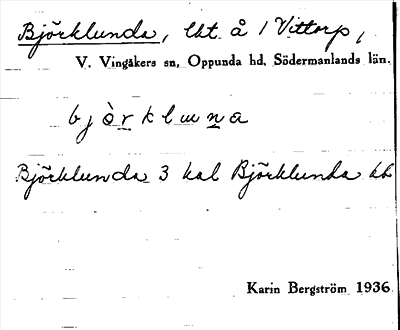 Björklunda, lht. å 1 Vittorp,
V. Vingåkers sn, Oppunda hd, Södermanlands län.
bjòrkluna
Björklunda 3 kal Björklunda kb
Karin Bergström 1936